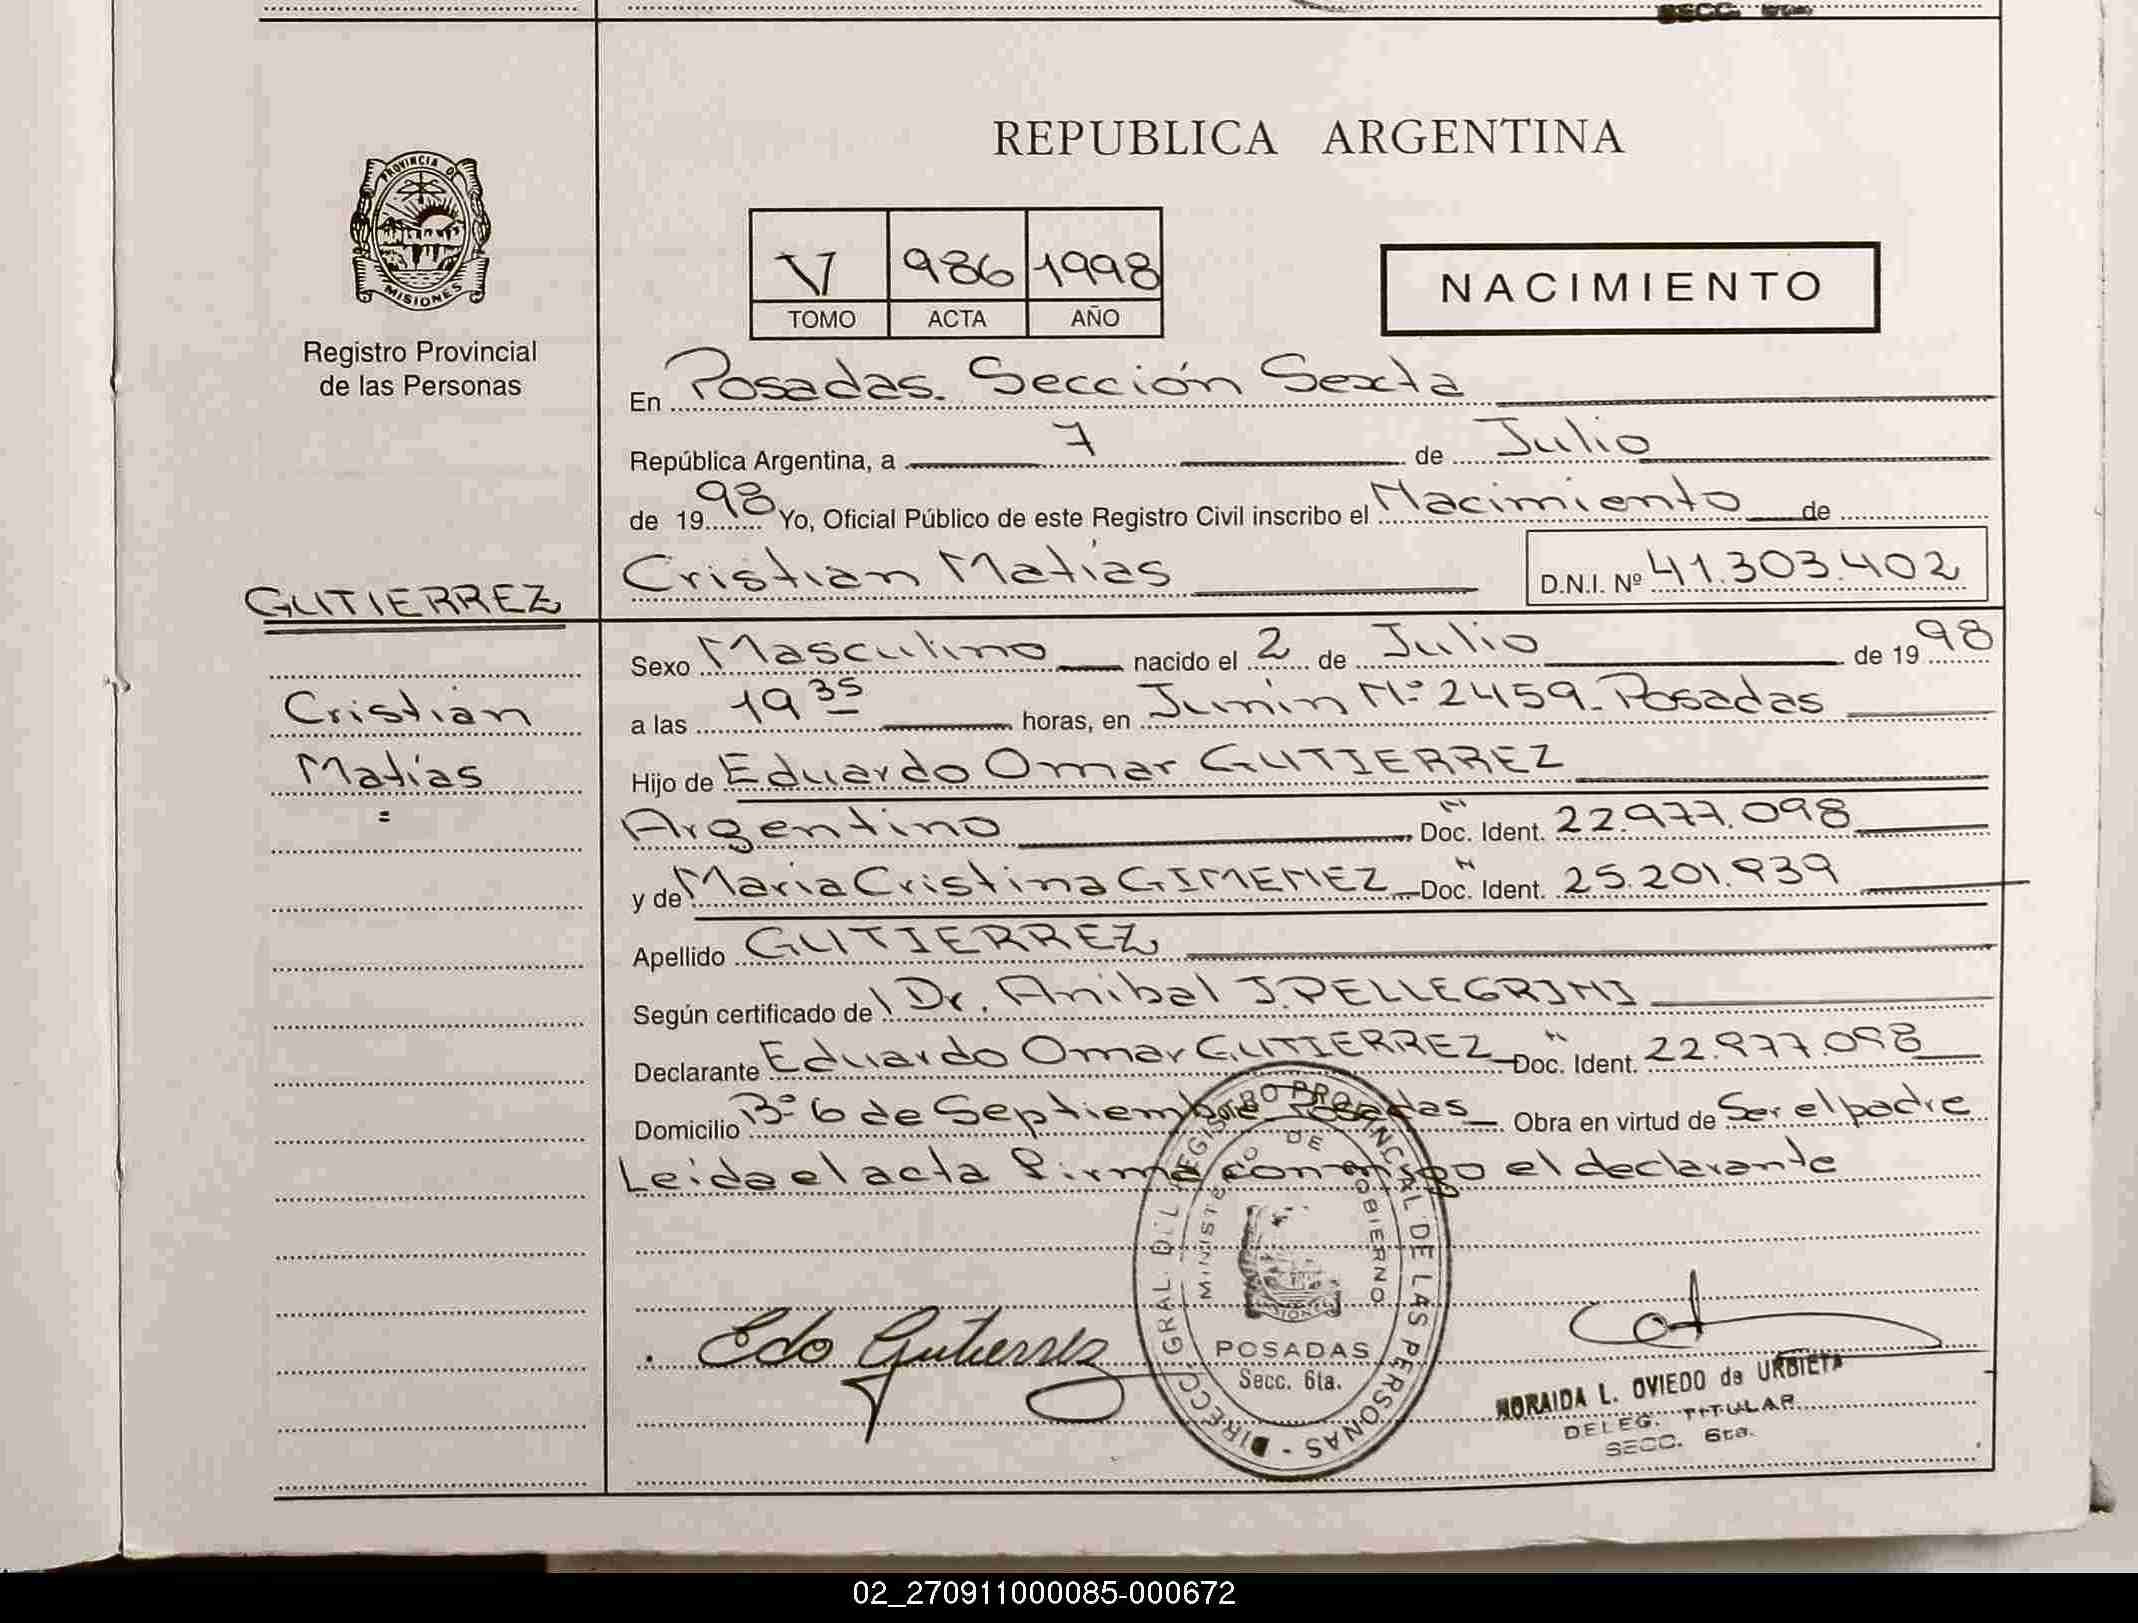 SECC. 6ta.
REPUBLICA ARGENTINA
PROVINCIA DE
MISIONES
Registro Provincial
de las Personas
V 986 1998
TOMO ACTA AÑO
NACIMIENTO
En Posadas. Sección Sexta
República Argentina, a 7 de Julio
de 1998 Yo, Oficial Público de este Registro Civil inscribo el Nacimiento de
Cristian Matías D.N.I. Nº 41.303.402
GUTIERREZ
Cristian
Matías
=
Sexo Masculino nacido el 2 de Julio de 1998
a las 19 35 horas, en Junín Nº 2459 - Posadas
Hijo de Eduardo Omar GUTIERREZ
Argentino Doc. N Ident. 22.977.098
y de Maria Cristina GIMENEZ Doc. N Ident. 25.201.939
Apellido GUTIERREZ
Según certificado de Dr. Anibal J. PELLEGRINI
Declarante Eduardo Omar GUTIERREZ Doc. N Ident. 22.977.098
Domicilio Bº 6 de Septiembre Posadas Obra en virtud de Ser el padre
Leida el acta firma conmigo el declarante
DIRECC. GRAL. DEL REGISTRO PROVINCIAL DE LAS PERSONAS -
MINISTERIO DE GOBIERNO
POSADAS
Secc. 6ta.
Edo Gutierrez
NORAIDA L. OVIEDO de URBIETA
DELEG. TITULAR
SECC. 6ta.
02_270911000085-000672